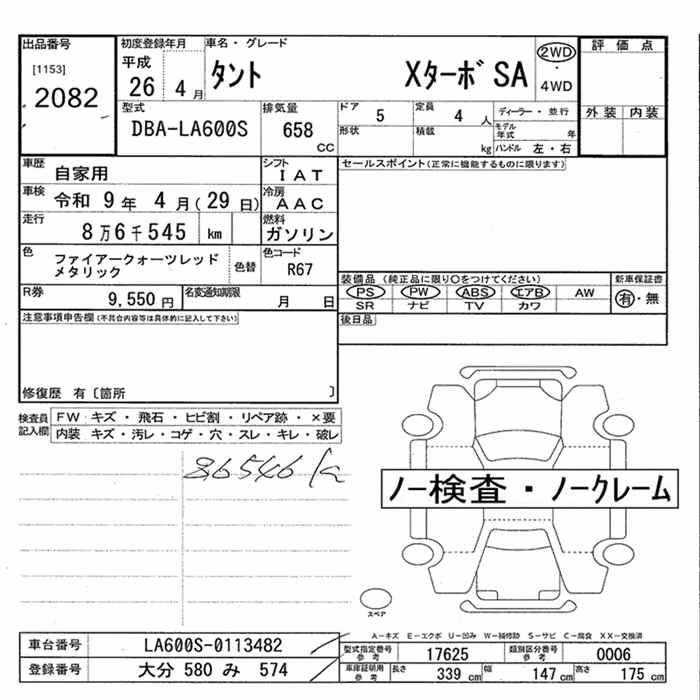 出品番号
[1153]
2082
初度登録年月
平成
26 4 月
車名・グレード
タント XターボSA
2WD
・
4WD
評価点
外装 内装
型式
DBA-LA600S
排気量
658
CC
ドア
5
形状
定員
4 人
積載
kg
ディーラー・並行
モデル年式 年
ハンドル 左・右
車歴
自家用
シフト
IAT
セールスポイント(正常に機能するものに限ります)
車検
令和 9 年 4 月 (29 日)
冷房
AAC
走行
8万6千545 km
燃料
ガソリン
色
ファイアークォーツレッド
メタリック
色替
色コード
R67
装備品(純正品に限り○をつけてください)
PS PW ABS エアB AW
SR ナビ TV カワ
新車保証書
有・無
R券
9,550円
名変通知期限
月 日
後日品
注意事項申告欄(不具合内容等は具体的に記入して下さい)
修復歴 有〔箇所 〕
検査員
記入欄
FW キズ・飛石・ヒビ割・リペア跡・×要
内装 キズ・汚レ・コゲ・穴・スレ・キレ・破レ
86546 km
ノー検査・ノークレーム
スペア
A-キズ E-エクボ U-凹み W-補修跡 S-サビ C-腐食 XX-交換済
車台番号
LA600S-0113482
登録番号
大分 580 み 574
型式指定番号
参考
17625
類別区分番号
参考
0006
車庫証明用
参考
長さ
339 cm
幅
147 cm
高さ
175 cm